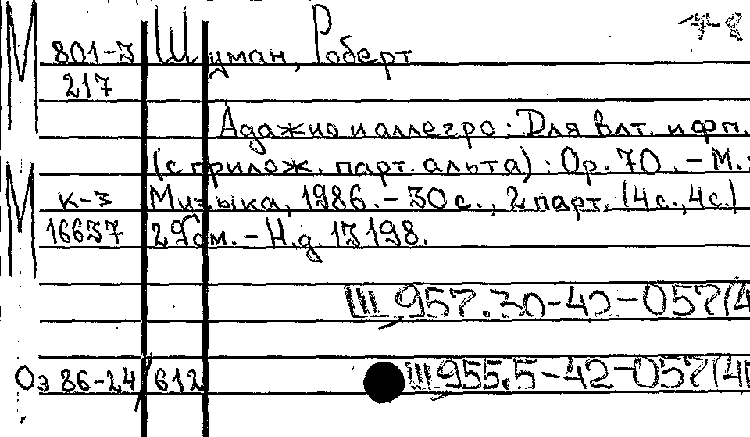 М 801-3 Шуман, Роберт
217
Адажио и аллегро: Для влт. и фп.
(с прилож. парт. альта): Ор. 70. - М.:
М к-3 Музыка, 1986. - 30 с., 2 парт. (4с., 4с.)
16637 29 см. - Н.д. 13198.
Ш 957.30-42-057(4
Оэ 86-24/612 Ш 955.5-42-057(4